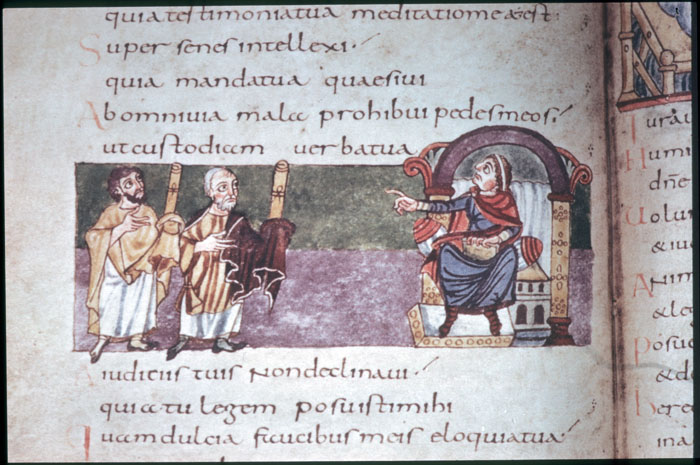 quia testimonia tua meditatio mea est
Super senes intellexi
quia mandata tua quaesiui
Ab omni uia mala prohibui pedes meos
ut custodiam uerba tua
A iudiciis tuis Non declinaui
quia tu legem posuisti mihi
Quam dulcia faucibus meis eloquia tua
Iura
humi
dn̄e
Uolu
& iu
Anim
& le
Posu
& d
here
ina